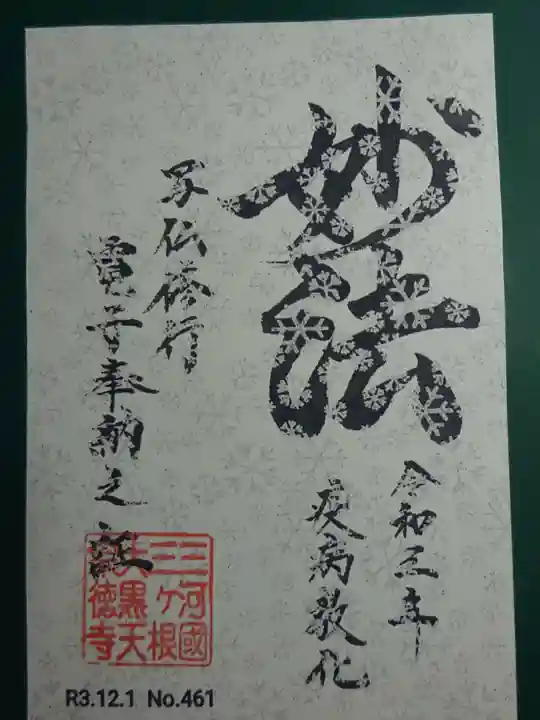 妙法
令和三年
疫病教化
写仏修行
寛斎奉納之証
三河國
三ヶ根
大黒天
徳寺
R3.12.1 No.461